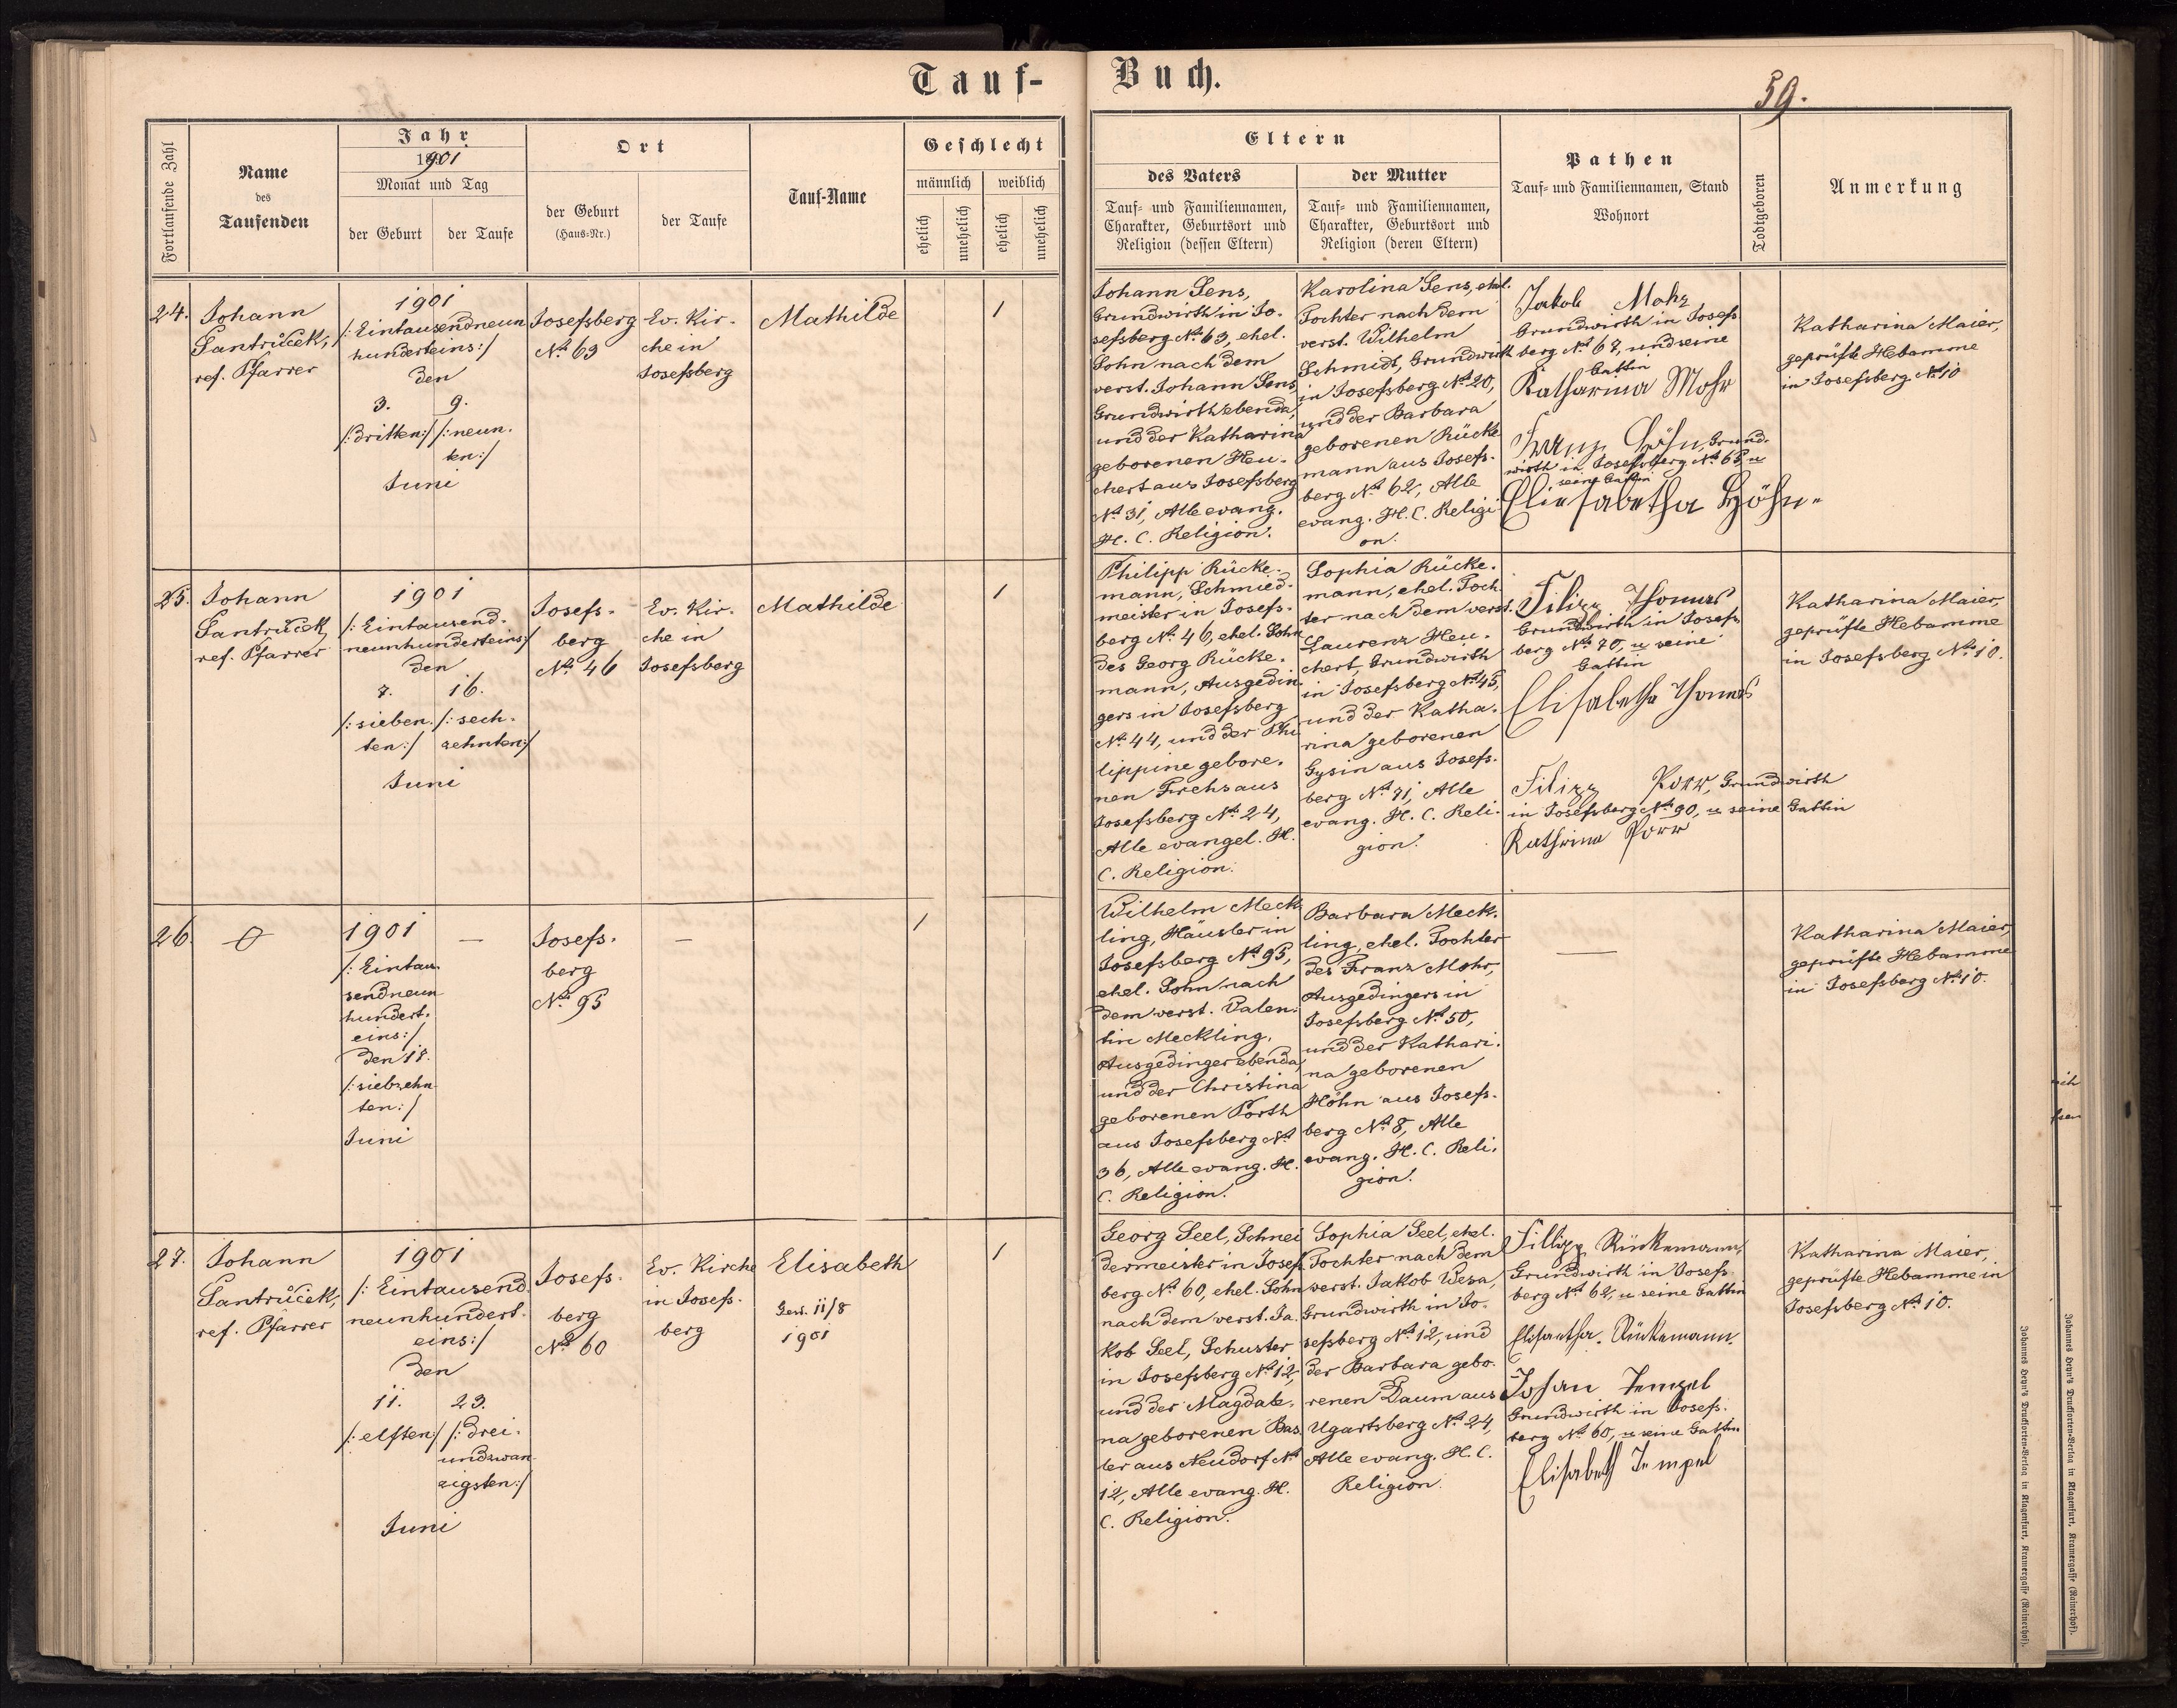 Tauf-
Buch.
59.
Fortlaufende Zahl
Name
des
Taufenden
Jahr
1901
Monat und Tag
der Geburt
der Taufe
Ort
der Geburt
(Haus-Nr.)
der Taufe
Tauf-Name
Geschlecht
männlich
weiblich
ehelich
unehelich
ehelich
unehelich
Eltern
des Vaters
Tauf- und Familiennamen,
Charakter, Geburtsort und
Religion (dessen Eltern)
der Mutter
Tauf- und Familiennamen,
Charakter, Geburtsort und
Religion (deren Eltern)
Pathen
Tauf- und Familiennamen, Stand
Wohnort
Todtgeboren
Anmerkung
24.
Johann
Santrůček,
ref. Pfarrer
1901
/: Eintausendneun
hunderteins:/
den
3. 9.
/:dritten:/ /:neun.
ten:/
Juni
Josefsberg
No. 63
Ev. Kir-
che in
Josefsberg
Mathilde
1
Johann Sens,
Grundwirth in Jo-
sefsberg No. 63, ehel.
Sohn nach dem
verst. Johann Sens,
Grundwirth ebenda,
und der Katharina
geborenen Heu-
chert aus Josefsberg
No. 31, Alle evang.
H. C. Religion.
Karolina Sens, ehel.
Tochter nach dem
verst. Wilhelm
Schmidt, Grundwirth
in Josefsberg No. 20,
und der Barbara
geborenen Rücke
mann aus Josefs-
berg No. 62, Alle
evang. H. C. Religi
on.
Jakob Mohr
Grundwirth in Josefs
berg No. 67, und seine
Gattin
Katharina Mohr
Franz Höhn, Grund-
wirth in Josefsberg No. 65, u
seine Gattin
Eliesabetha Höhn.
Katharina Maier,
geprüfte Hebamme
in Josefsberg No. 10
25.
Johann
Santrůček,
ref. Pfarrer
1901
/: Eintausend-
neunhunderteins:/
den
7. 16.
/:sieben. /:sech-
ten:/ zehnten:/
Juni
Josefs-
berg
No. 46
Ev. Kir-
che in
Josefsberg
Mathilde
1
Philipp Rücke-
mann, Schmied-
meister in Josefs-
berg No. 46, ehel. Sohn
des Georg Rücke-
mann, Ausgedin-
gers in Josefsberg
No. 44, und der Phi
lippine gebore-
nen Frehs aus
Josefsberg No. 24,
Alle evangel. H.
C. Religion.
Sophia Rücke-
mann, ehel. Toch
ter nach dem verst.
Laurenz Heu-
chert, Grundwirth
in Josefsberg No. 45,
und der Katha-
rina geborenen
Gysin aus Josefs-
berg No. 71, Alle
evang. H. C. Reli-
gion.
Filipp Thomas
Grundwirth in Josefs
berg No. 70, u seine
Gattin
Elisabetha Thomas
Filipp Porr, Grundwirth
in Josefsberg No. 90, u seine Gattin
Kathrina Porr
Katharina Maier,
geprüfte Hebamme
in Josefsberg No. 10.
26.
1901
/: Eintau-
sendneun
hundert-
eins:/
den 17.
/:siebzehn
ten:/
Juni
—
Josefs-
berg
No. 95
—
1
Wilhelm Meck
ling, Häusler in
Josefsberg No. 95,
ehel. Sohn nach
dem verst. Valen-
tin Meckling,
Ausgedinger ebenda,
und der Christina
geborenen Porth
aus Josefsberg No.
36, Alle evang. H.
C. Religion.
Barbara Meck-
ling, ehel. Tochter
des Franz Mohr,
Ausgedingers in
Josefsberg No. 50,
und der Kathari-
na geborenen
Höhn aus Josefs-
berg No. 8, Alle
evang. H. C. Reli-
gion.
—
Katharina Maier,
geprüfte Hebamme
in Josefsberg No. 10.
27.
Johann
Santrůček,
ref. Pfarrer
1901
/: Eintausend-
neunhundert-
eins:/
den
11. 23.
/:elften:/ /:drei-
undzwan
zigsten:/
Juni
Josefs-
berg
No. 60
Ev. Kirche
in Josefs-
berg
Elisabeth
Gest. 11/8
1901
1
Georg Seel, Schnei
dermeister in Josefs
berg No. 60, ehel. Sohn
nach dem verst. Ja-
kob Seel, Schuster
in Josefsberg No. 12,
und der Magdale-
na geborenen Bas
ler aus Neudorf No.
12, Alle evang. H.
C. Religion.
Sophia Seel, ehel.
Tochter nach dem
verst. Jakob Wesa,
Grundwirth in Jo-
sefsberg No. 12, und
der Barbara gebo-
renen Daum aus
Ugartsberg No. 24,
Alle evang. H. C.
Religion.
Fillipp Rückemann,
Grundwirth in Josefs
berg No. 62, u seine Gattin
Elisaetha. Rückemann.
Johan Tempel
Grundwirth in Josefs-
berg No. 60, u seine Gattin
Elisabeth Tempel
Katharina Maier,
geprüfte Hebamme in
Josefsberg No. 10.
Johannes Heyn's Drucksorten-Verlag in Klagenfurt, Kramergasse (Rainerhof).
Johannes Heyn's Drucksorten-Verlag in Klagenfurt, Kramergasse (Rainerhof).